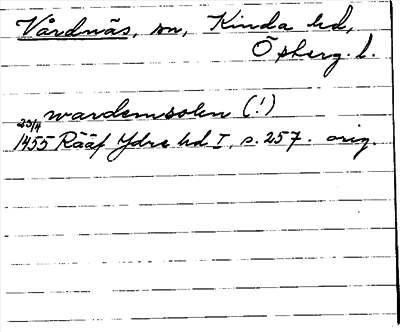 Vårdnäs, sn, Kinda hd,
Östberg. l.
wardemsolen (!)
23/4
1455 Rääf Ydre hd I, s. 257. orig.